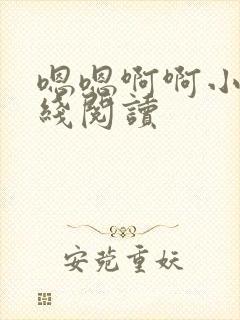 嗯嗯啊啊小
綫閱讀
安菀重妖